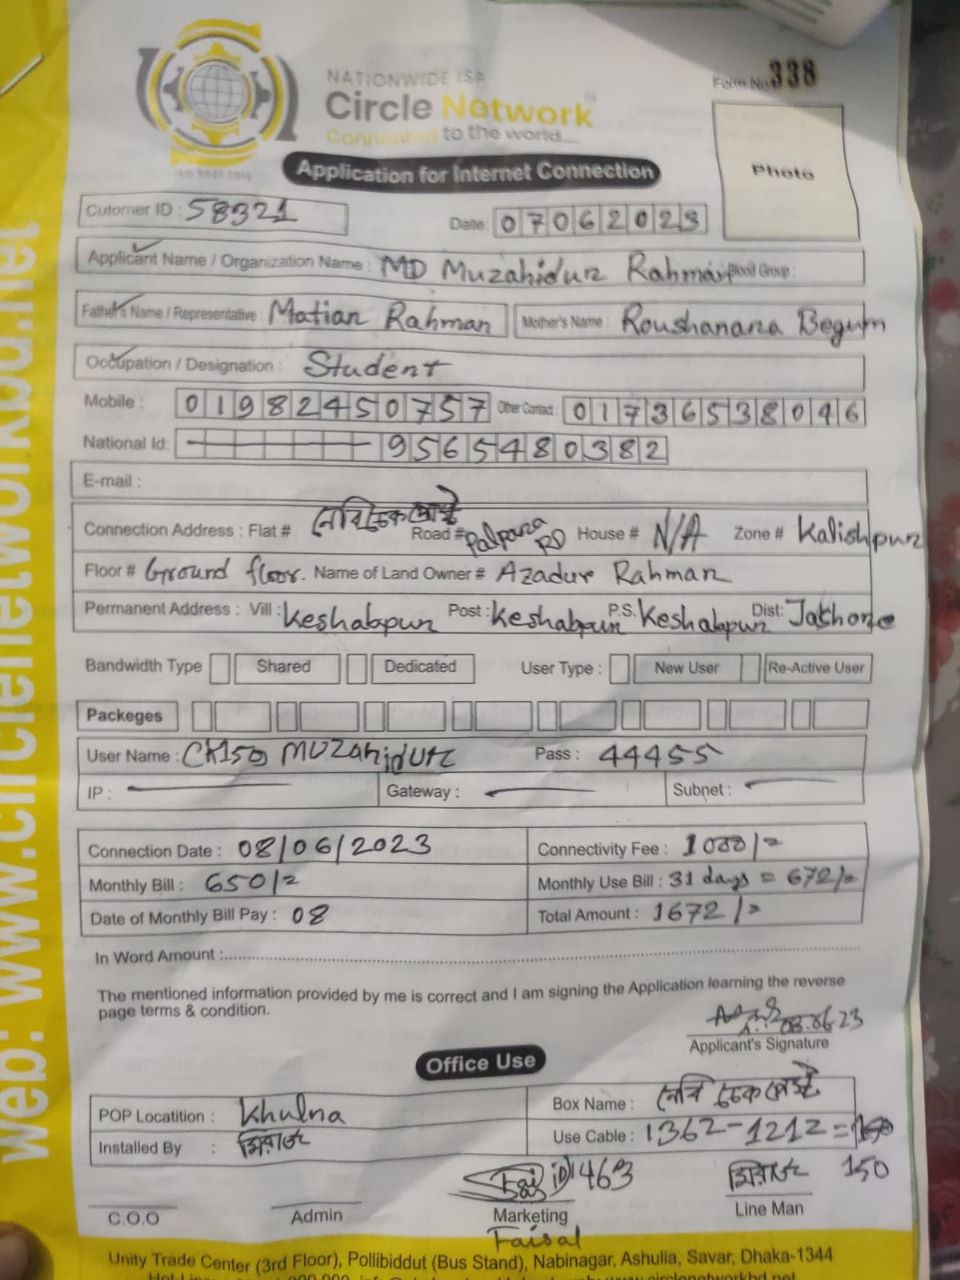 NATIONWIDE ISP
Circle Network
Connected to the world...
ISO 9001:2015
Form No. 338
Photo
Application for Internet Connection
Cutomer ID : 58321
Date: 07062023
Applicant Name / Organization Name : MD Muzahidur Rahman Blood Group :
Father's Name / Representative : Matian Rahman Mother's Name : Roushanara Begum
Occupation / Designation : Student
Mobile : 01982450757 Other Contact : 01736538046
National Id: 9565480382
E-mail :
Connection Address : Flat # নেবি চেকপোষ্ট Road # Palpara RD House # N/A Zone # Kalishpur
Floor # Ground floor. Name of Land Owner # Azadur Rahman
Permanent Address : Vill : Keshabpur Post : Keshabpur P.S. Keshabpur Dist: Jashore
Bandwidth Type Shared Dedicated User Type : New User Re-Active User
Packeges
User Name : Muzahidur Pass : 44455
IP : Gateway : Subnet :
Connection Date : 08/06/2023 Connectivity Fee : 1000/=
Monthly Bill : 650/= Monthly Use Bill : 31 days = 672/=
Date of Monthly Bill Pay : 08 Total Amount : 1672/=
In Word Amount :
The mentioned information provided by me is correct and I am signing the Application learning the reverse
page terms & condition.
08.06.23
Applicant's Signature
Office Use
POP Locatition : Khulna Box Name : নেবি চেকপোষ্ট
Installed By : মিরাজ Use Cable : 1362-1212=150
ID 463 মিরাজ 150
C.O.O Admin Marketing Line Man
Faisal
Unity Trade Center (3rd Floor), Pollibiddut (Bus Stand), Nabinagar, Ashulia, Savar, Dhaka-1344
web: www.circlenetworkbd.net